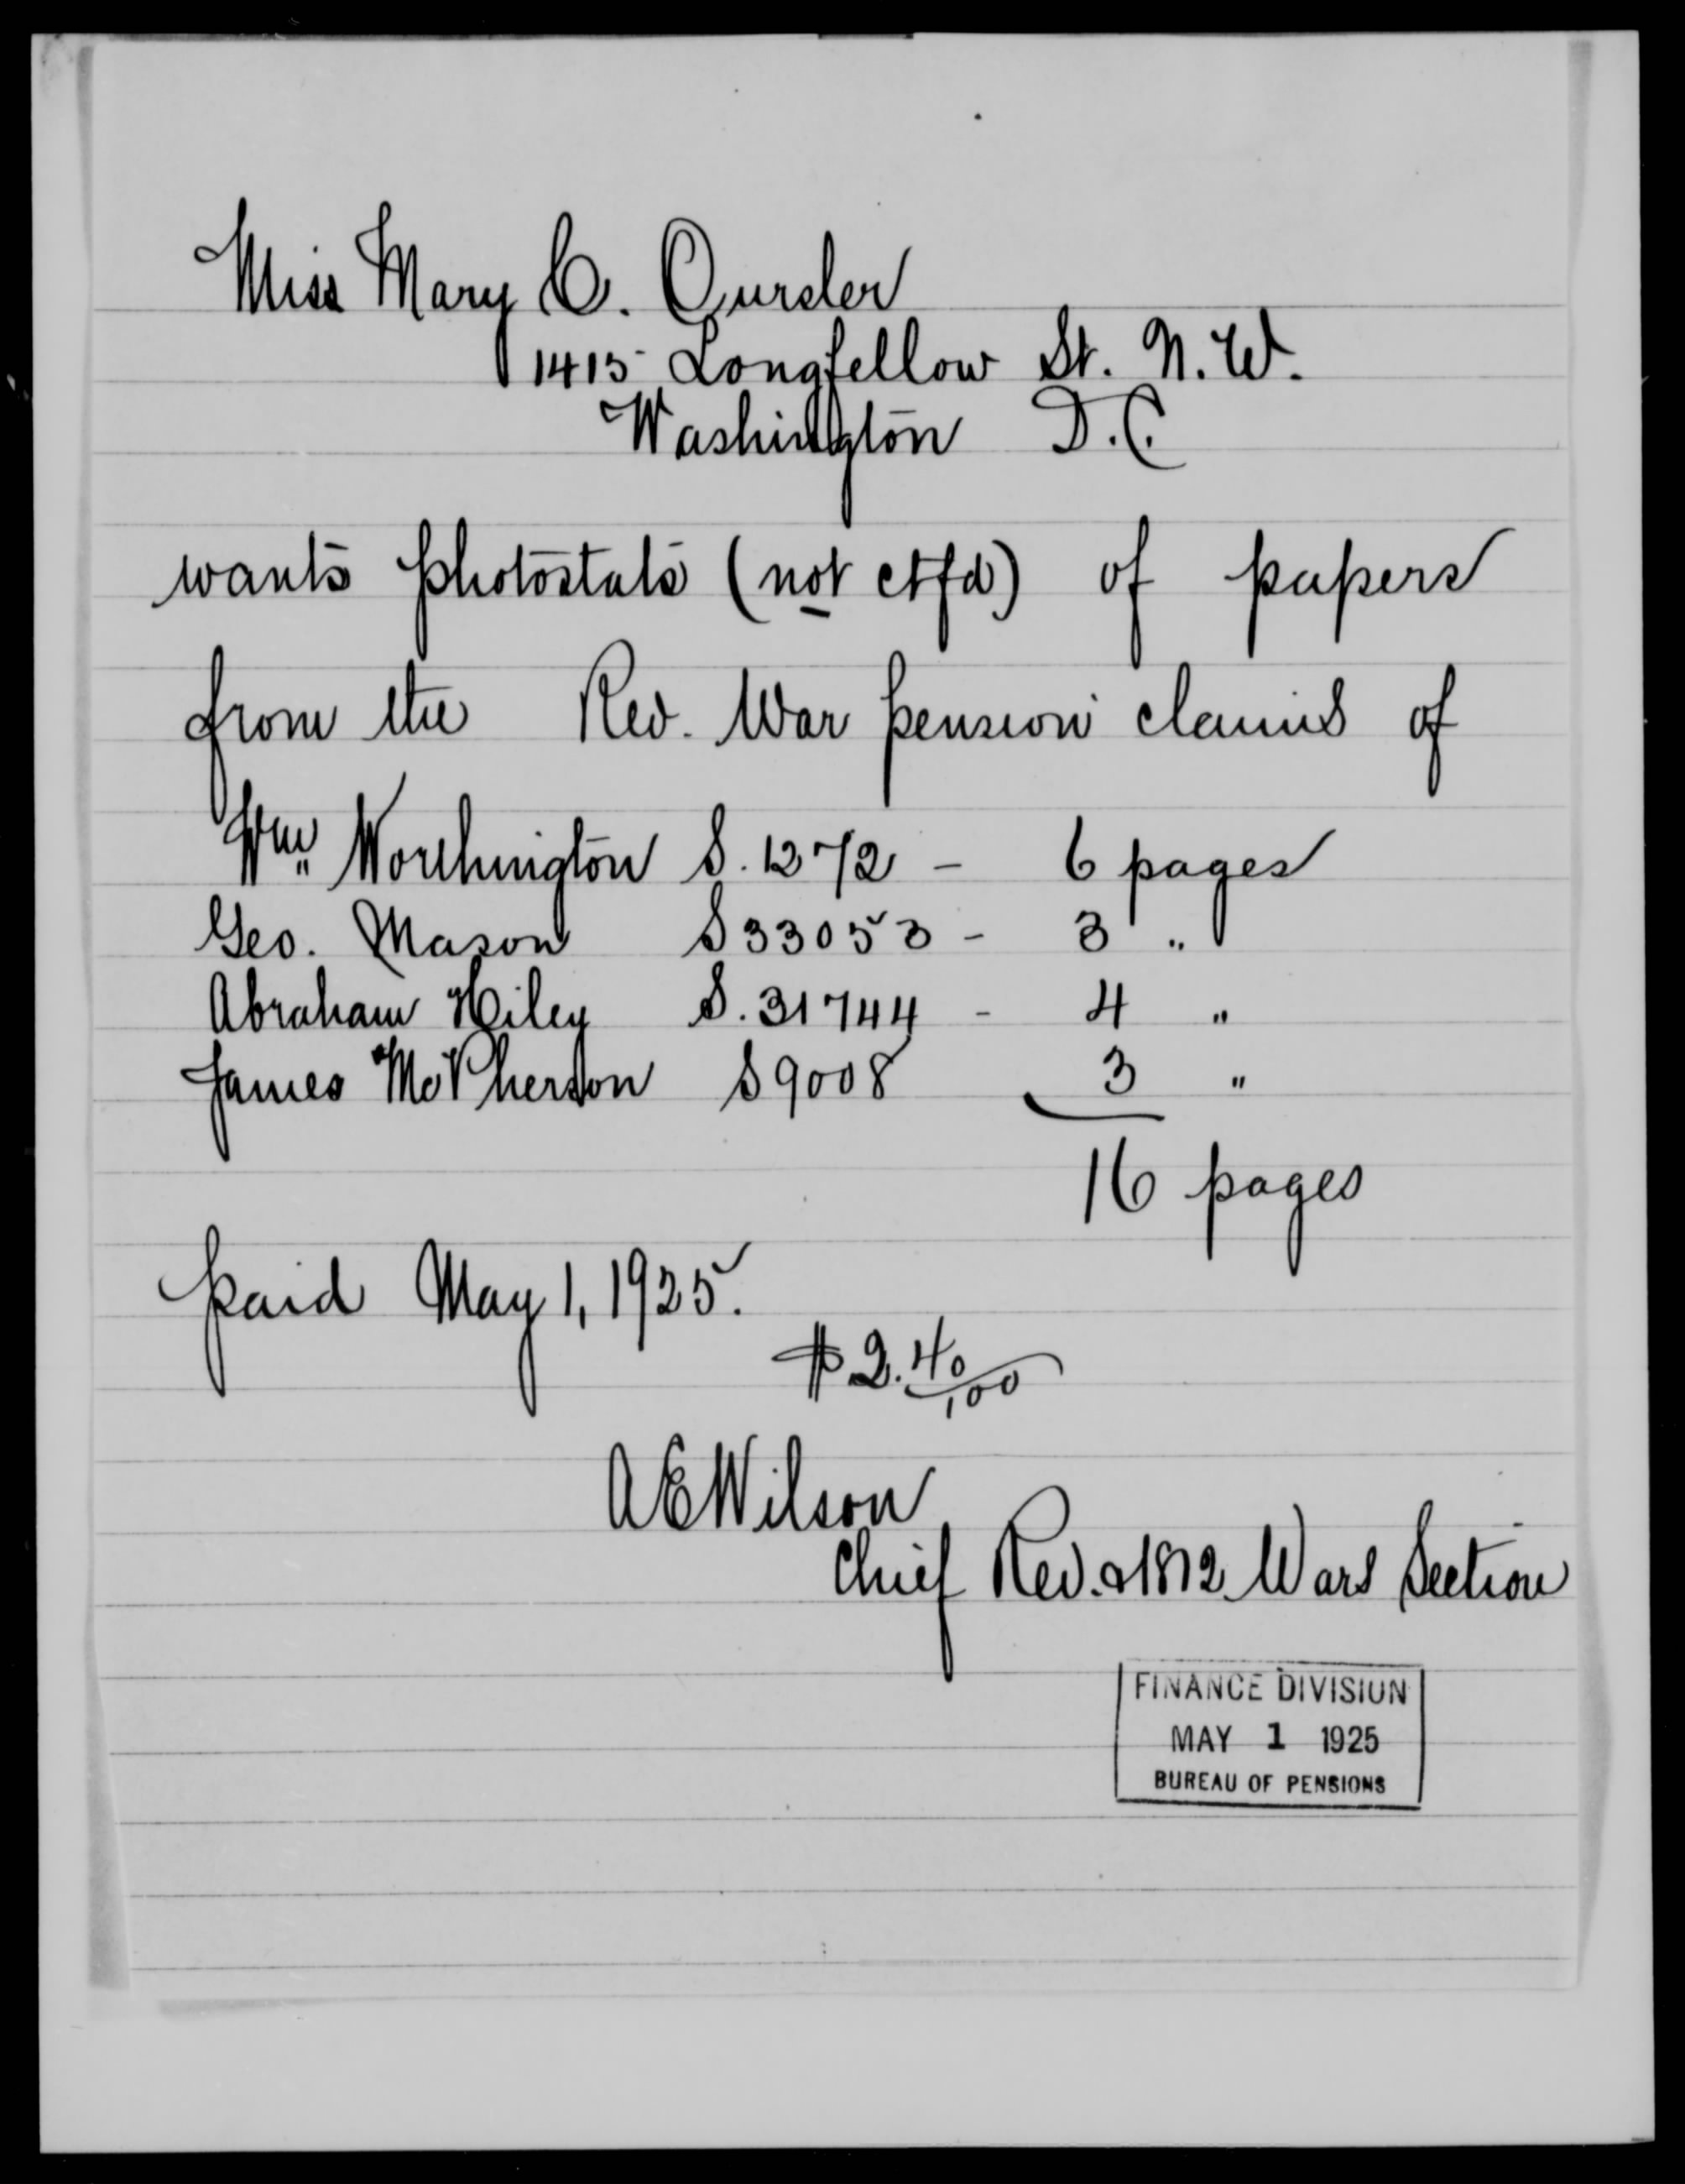 Miss Mary C. Oursler
1415 Longfellow St. N.W.
Washington D.C.
wants photostats (not ctfd) of papers
from the Rev. War pension claims of
Wm Worthington S. 1272 - 6 pages
Geo. Mason S 33053 - 3 "
Abraham Hiley S. 31744 - 4 "
James McPherson S 9008 3 "
16 pages
paid May 1, 1925.
$2.40/100
A E Wilson
Chief Rev. & 1812 Wars Section
FINANCE DIVISION
MAY 1 1925
BUREAU OF PENSIONS